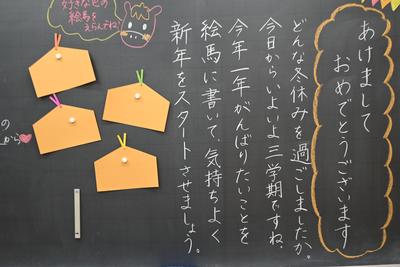 あけまして
おめでとうございます
どんな冬休みを過ごしましたか。
今日からいよいよ三学期ですね。
今年一年がんばりたいことを
絵馬に書いて、気持ちよく
新年をスタートさせましょう。
好きな色の
絵馬を
えらんでね!
の
から